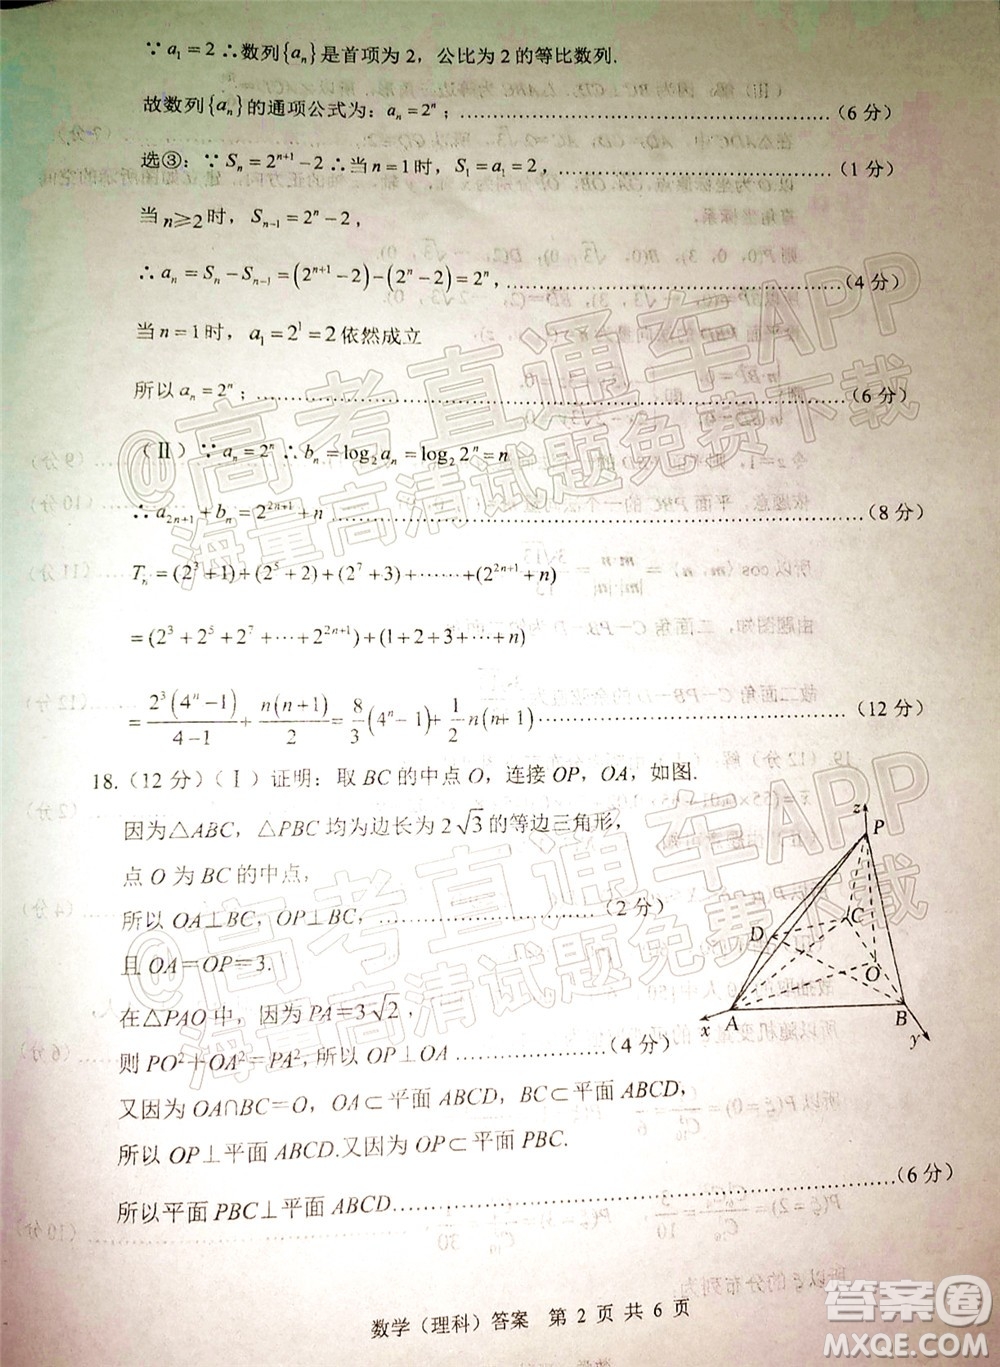 ∵ a₁ = 2 ∴数列{aₙ}是首项为 2，公比为 2 的等比数列.
故数列{aₙ}的通项公式为：aₙ = 2ⁿ；……………………（6 分）
选③：∵ Sₙ = 2ⁿ⁺¹ − 2 ∴当 n = 1 时，S₁ = a₁ = 2，……………………（1 分）
当 n ≥ 2 时，Sₙ₋₁ = 2ⁿ − 2，
∴ aₙ = Sₙ − Sₙ₋₁ = (2ⁿ⁺¹ − 2) − (2ⁿ − 2) = 2ⁿ，……………………（4 分）
当 n = 1 时，a₁ = 2¹ = 2 依然成立
所以 aₙ = 2ⁿ；……………………（6 分）
（Ⅱ）∵ aₙ = 2ⁿ ∴ bₙ = log₂ aₙ = log₂ 2ⁿ = n
∴ a₂ₙ₊₁ + bₙ = 2²ⁿ⁺¹ + n ……………………（8 分）
Tₙ = (2³ + 1) + (2⁵ + 2) + (2⁷ + 3) + ⋯⋯ + (2²ⁿ⁺¹ + n)
= (2³ + 2⁵ + 2⁷ + ⋯ + 2²ⁿ⁺¹) + (1 + 2 + 3 + ⋯ + n)
= 2³(4ⁿ − 1)/(4 − 1) + n(n + 1)/2 = 8/3 (4ⁿ − 1) + 1/2 n(n + 1) ……………………（12 分）
18.（12 分）（Ⅰ）证明：取 BC 的中点 O，连接 OP，OA，如图.
因为△ABC，△PBC 均为边长为 2√3 的等边三角形，
点 O 为 BC 的中点，
所以 OA⊥BC，OP⊥BC，……………………（2 分）
且 OA=OP=3.
在△PAO 中，因为 PA=3√2，
则 PO²+OA²=PA²，所以 OP⊥OA ……………………（4 分）
又因为 OA∩BC=O，OA⊂平面 ABCD，BC⊂平面 ABCD，
所以 OP⊥平面 ABCD.又因为 OP⊂平面 PBC.
所以平面 PBC⊥平面 ABCD……………………（6 分）
z
P
D
C
O
x
A
B
y
数学（理科）答案 第 2 页 共 6 页
@高考直通车APP
海量高清试题免费下载
@高考直通车APP
海量高清试题免费下载
答案圈
MXQE.COM